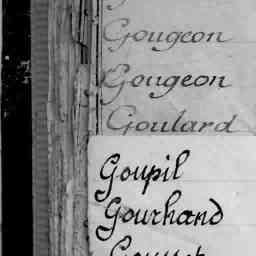 Gougeon
Gougeon
Goulard
Goupil
Gourhand